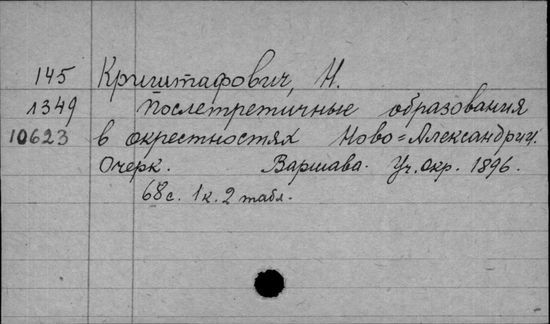 145 Криштафович, Н.
1349 Послетретичные образования
10623 в окрестностях Ново=Александрии.
Очерк. Варшава. Уч. Окр. 1896.
68 с. 1 к. 2 табл.